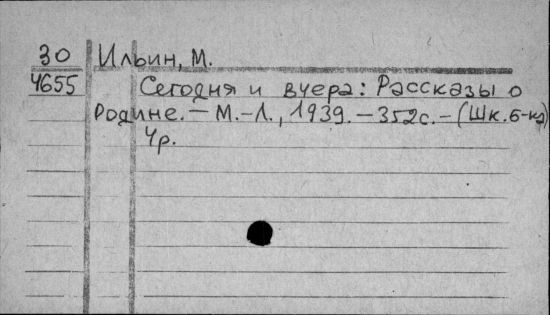 30 Ильин, М.
4655 Сегодня и вчера: Рассказы о
Родине. — М.-Л., 1939. — 352с. — (Шк. б-ка)
4р.